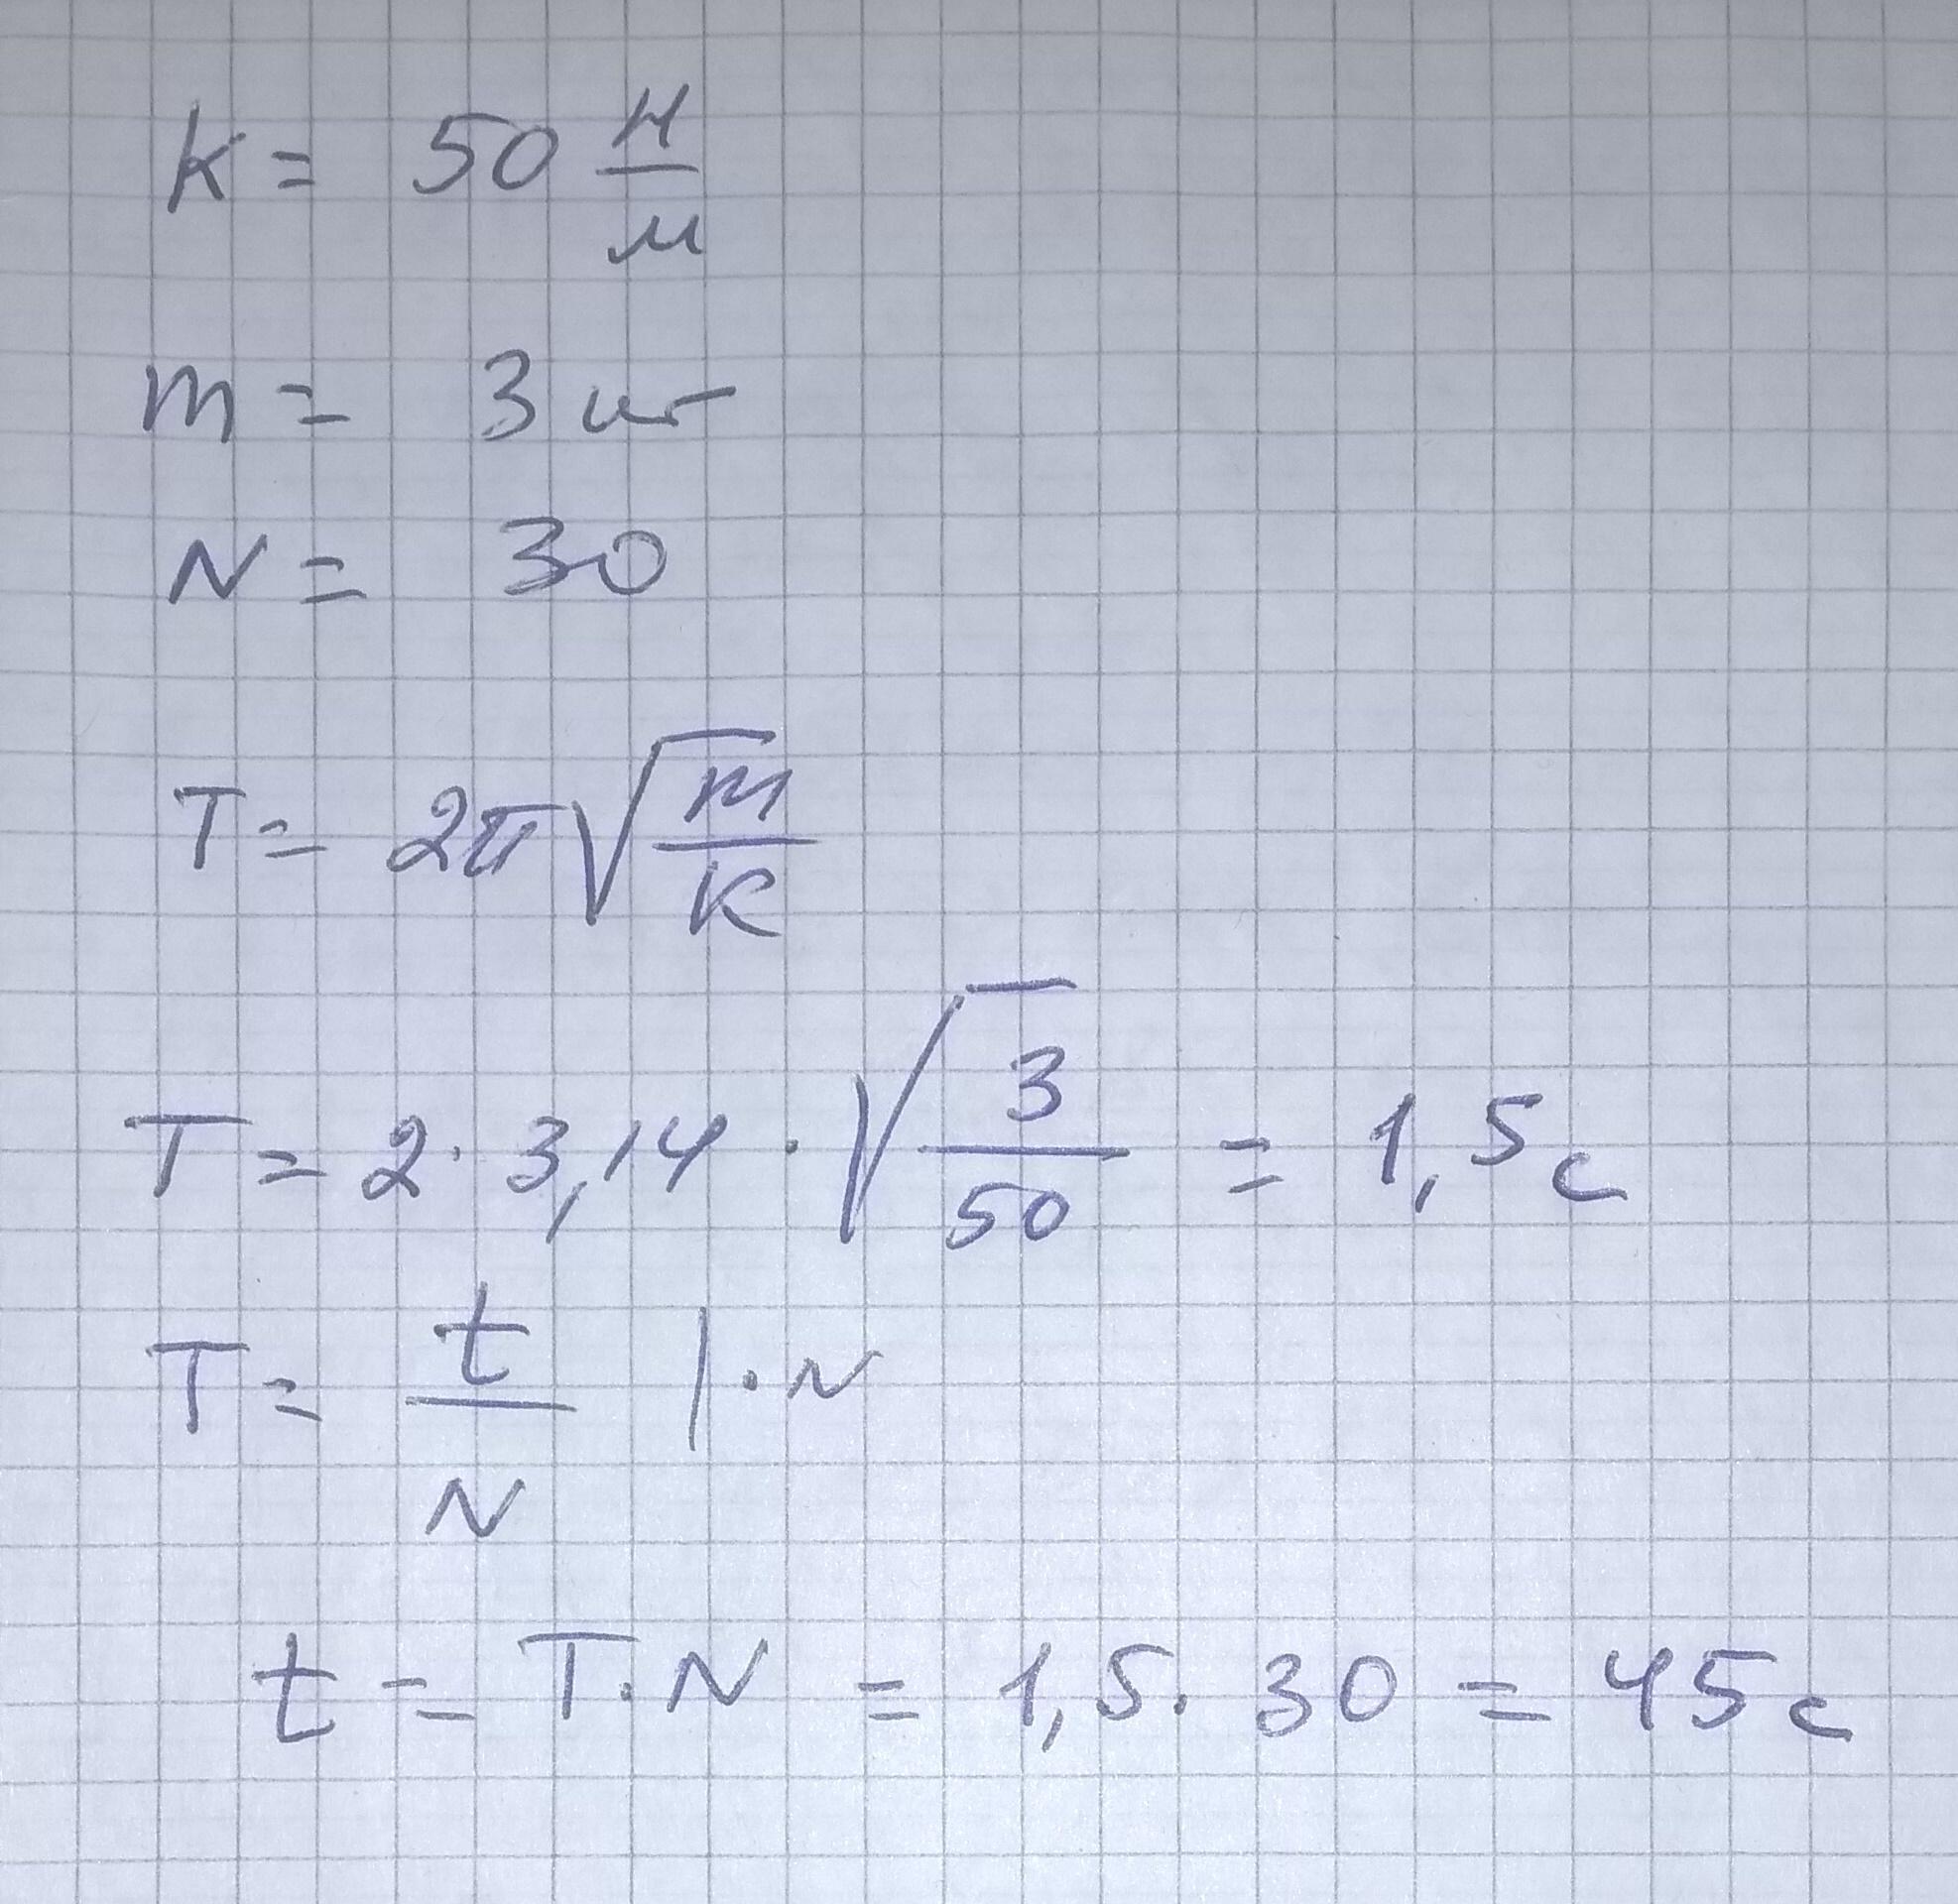 k = 50 Н/м
m = 3 кг
N = 30
T = 2π√(m/k)
T = 2 · 3,14 · √(3/50) = 1,5 с
T = t/N | · N
t = T · N = 1,5 · 30 = 45 с